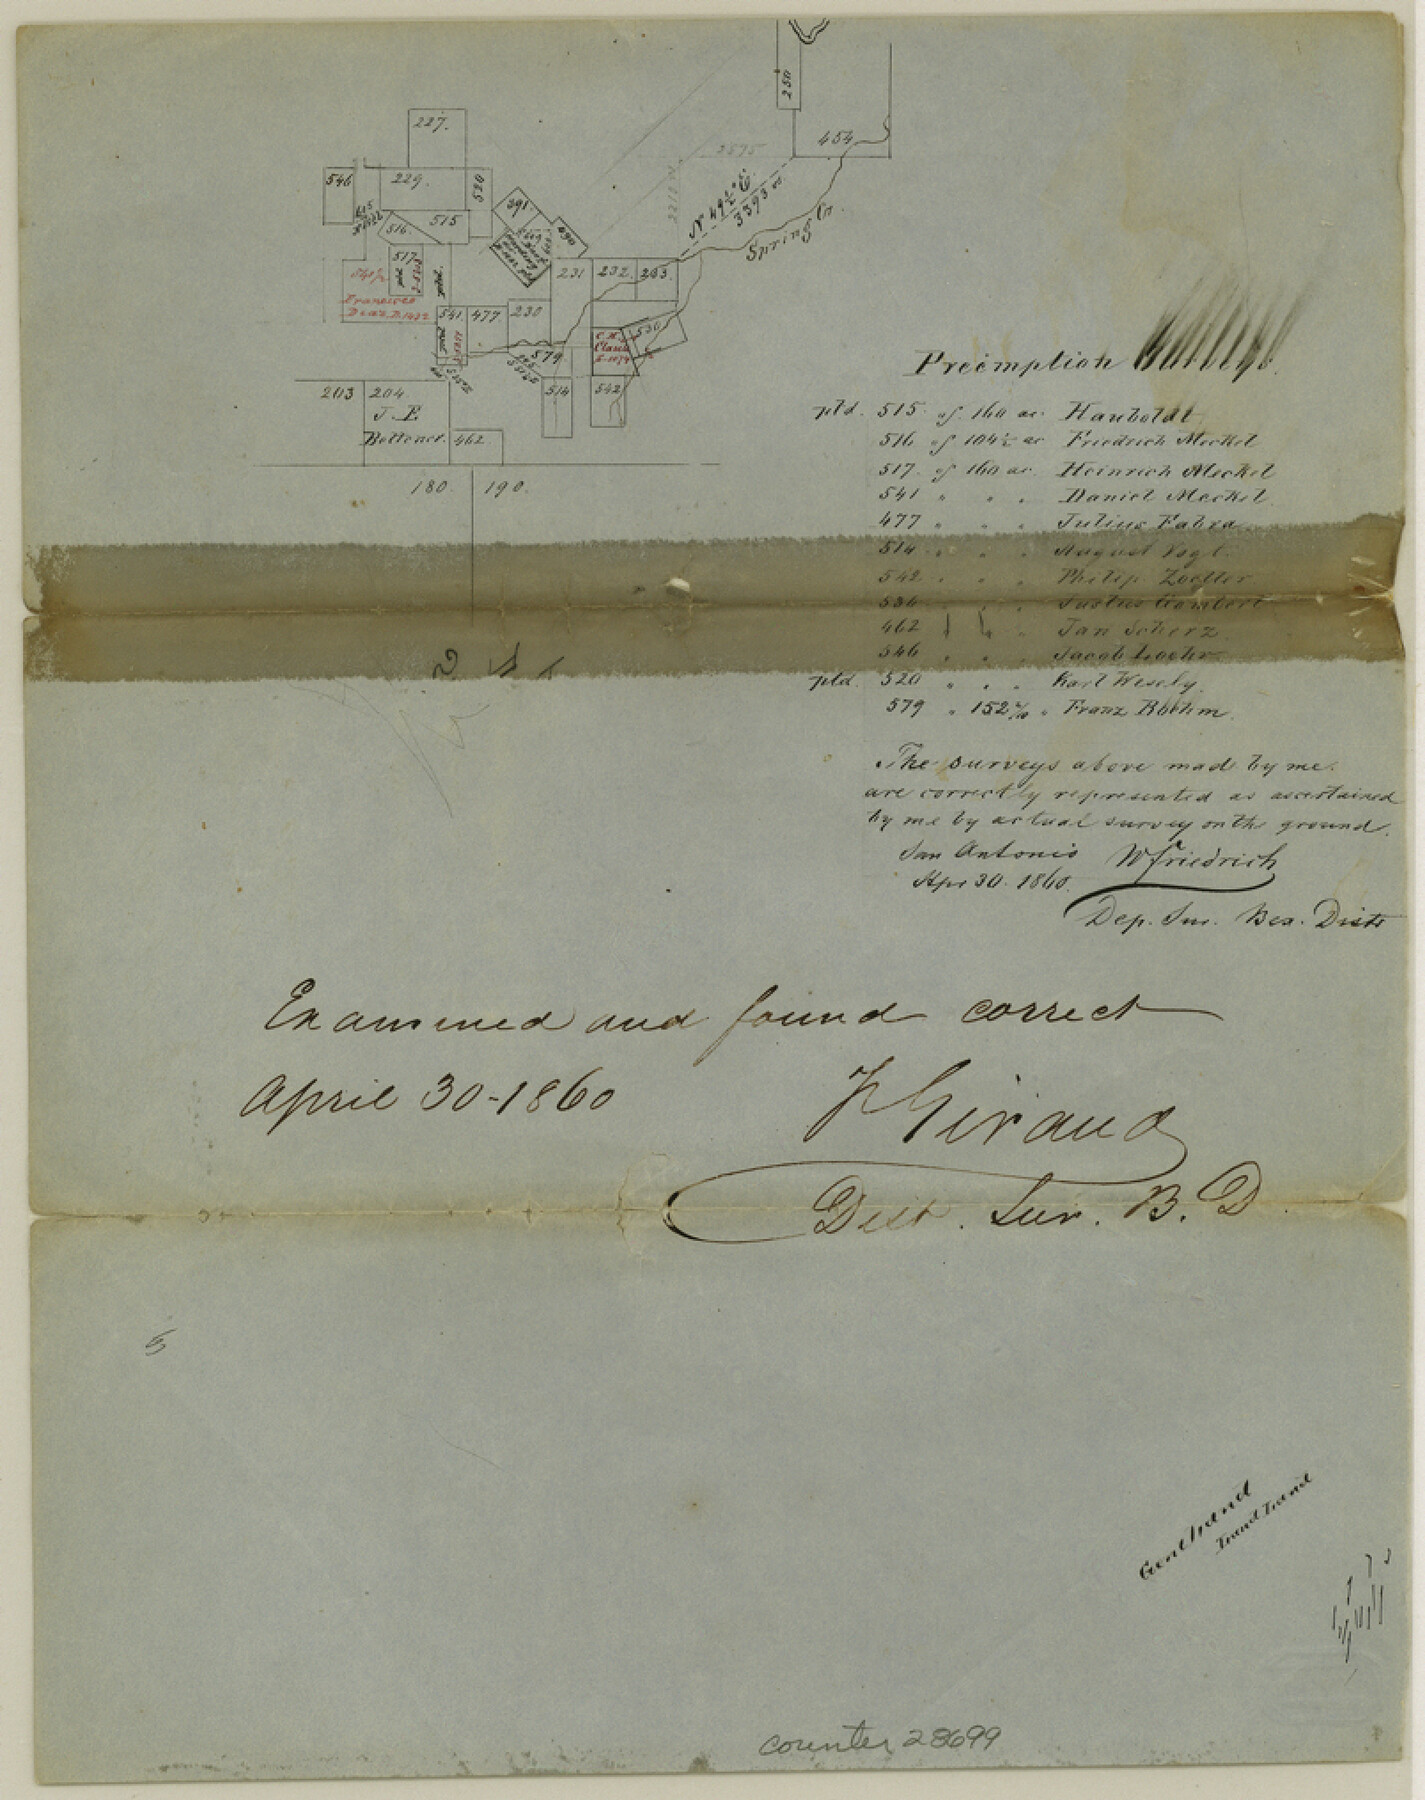 250
227.
454
2575
546
229.
520
N 49½° E.
3393 vs.
591.
515
516.
490
Spring Cr.
517.
231
232.
233.
Francisco
Diaz
541.
477.
230
530
C. H.
579
514
542
203
204
J. E.
462.
180.
190.
Preemption Surveys.
ptd. 515. of 160 ac. Hauboldt
516 of 104½ ac Friedrich Meckel
517. of 160 ac. Heinrich Meckel
541 " " " Daniel Meckel
477 " " " Julius Fabra
514 " " " August Vogt.
542 " " " Philip Zoeller
462 " Jan Scherz
546 " " " Jacob
ptd. 520 " " " Karl Wesely.
579 " 152 " Franz Boehm.
The surveys above made by me.
are correctly represented as ascertained
by me by actual survey on the ground.
San Antonio W Friedrich
Apr 30. 1860.
Dep. Sur. Bex. Distr
Examined and found correct
April 30-1860
F Giraud
Dist. Sur. B. D
5
counter 28699